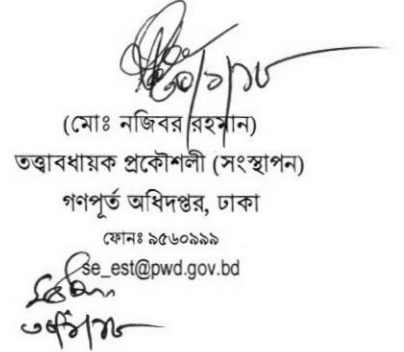 (মোঃ নজিবর রহমান)
তত্ত্বাবধায়ক প্রকৌশলী (সংস্থাপন)
গণপূর্ত অধিদপ্তর, ঢাকা
ফোনঃ ৯৫৬০৯৯৯
se_est@pwd.gov.bd